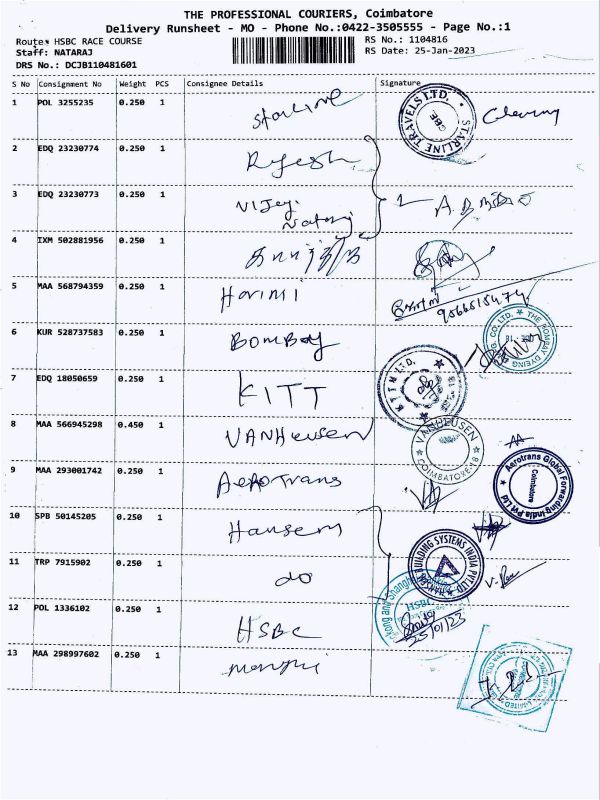 THE PROFESSIONAL COURIERS, Coimbatore
Delivery Runsheet - MO - Phone No.:0422-3505555 - Page No.:1
Route: HSBC RACE COURSE
RS No.: 1104816
Staff: NATARAJ
RS Date: 25-Jan-2023
DRS No.: DCJB110481601
S No Consignment No Weight PCS Consignee Details Signature
1 POL 3255235 0.250 1 Starline
STARLINE TRAVELS LTD. CBE
2 EDQ 23230774 0.250 1 Rajesh
3 EDQ 23230773 0.250 1 Vijay Nataraj
4 IXM 502881956 0.250 1
5 MAA 568794359 0.250 1 Harini
9566515474
6 KUR 528737583 0.250 1 BOMBAY
THE BOMBAY DYEING CO. LTD.
7 EDQ 18050659 0.250 1 KITT
8 MAA 566945298 0.450 1 VANHeusen
VANHEUSEN COIMBATORE-18
9 MAA 293001742 0.250 1 AeroTrans
Aerotrans Global Forwarding India Pvt Ltd Coimbatore
10 SPB 50145205 0.250 1
BUILDING SYSTEMS INDIA PVT LTD
11 TRP 7915902 0.250 1 do
12 POL 1336102 0.250 1 HSBC
HSBC
25/01/23
13 MAA 298997602 0.250 1
LIMITED